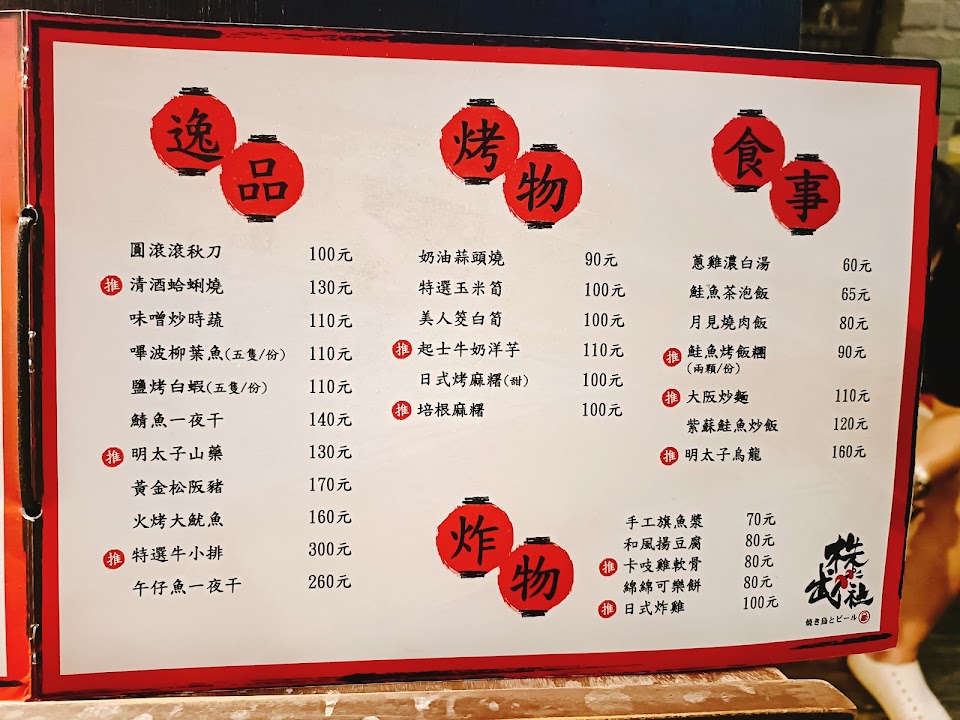 逸品
圓滾滾秋刀 100元
推 清酒蛤蜊燒 130元
味噌炒時蔬 110元
嗶波柳葉魚(五隻/份) 110元
鹽烤白蝦(五隻/份) 110元
鯖魚一夜干 140元
推 明太子山藥 130元
黃金松阪豬 170元
火烤大魷魚 160元
推 特選牛小排 300元
午仔魚一夜干 260元
烤物
奶油蒜頭燒 90元
特選玉米筍 100元
美人筊白筍 100元
推 起士牛奶洋芋 110元
日式烤麻糬(甜) 100元
推 培根麻糬 100元
炸物
手工旗魚漿 70元
和風揚豆腐 80元
推 卡吱雞軟骨 80元
綿綿可樂餅 80元
推 日式炸雞 100元
食事
蔥雞濃白湯 60元
鮭魚茶泡飯 65元
月見燒肉飯 80元
推 鮭魚烤飯糰 90元
(兩顆/份)
推 大阪炒麵 110元
紫蘇鮭魚炒飯 120元
推 明太子烏龍 160元
焼き鳥とビール